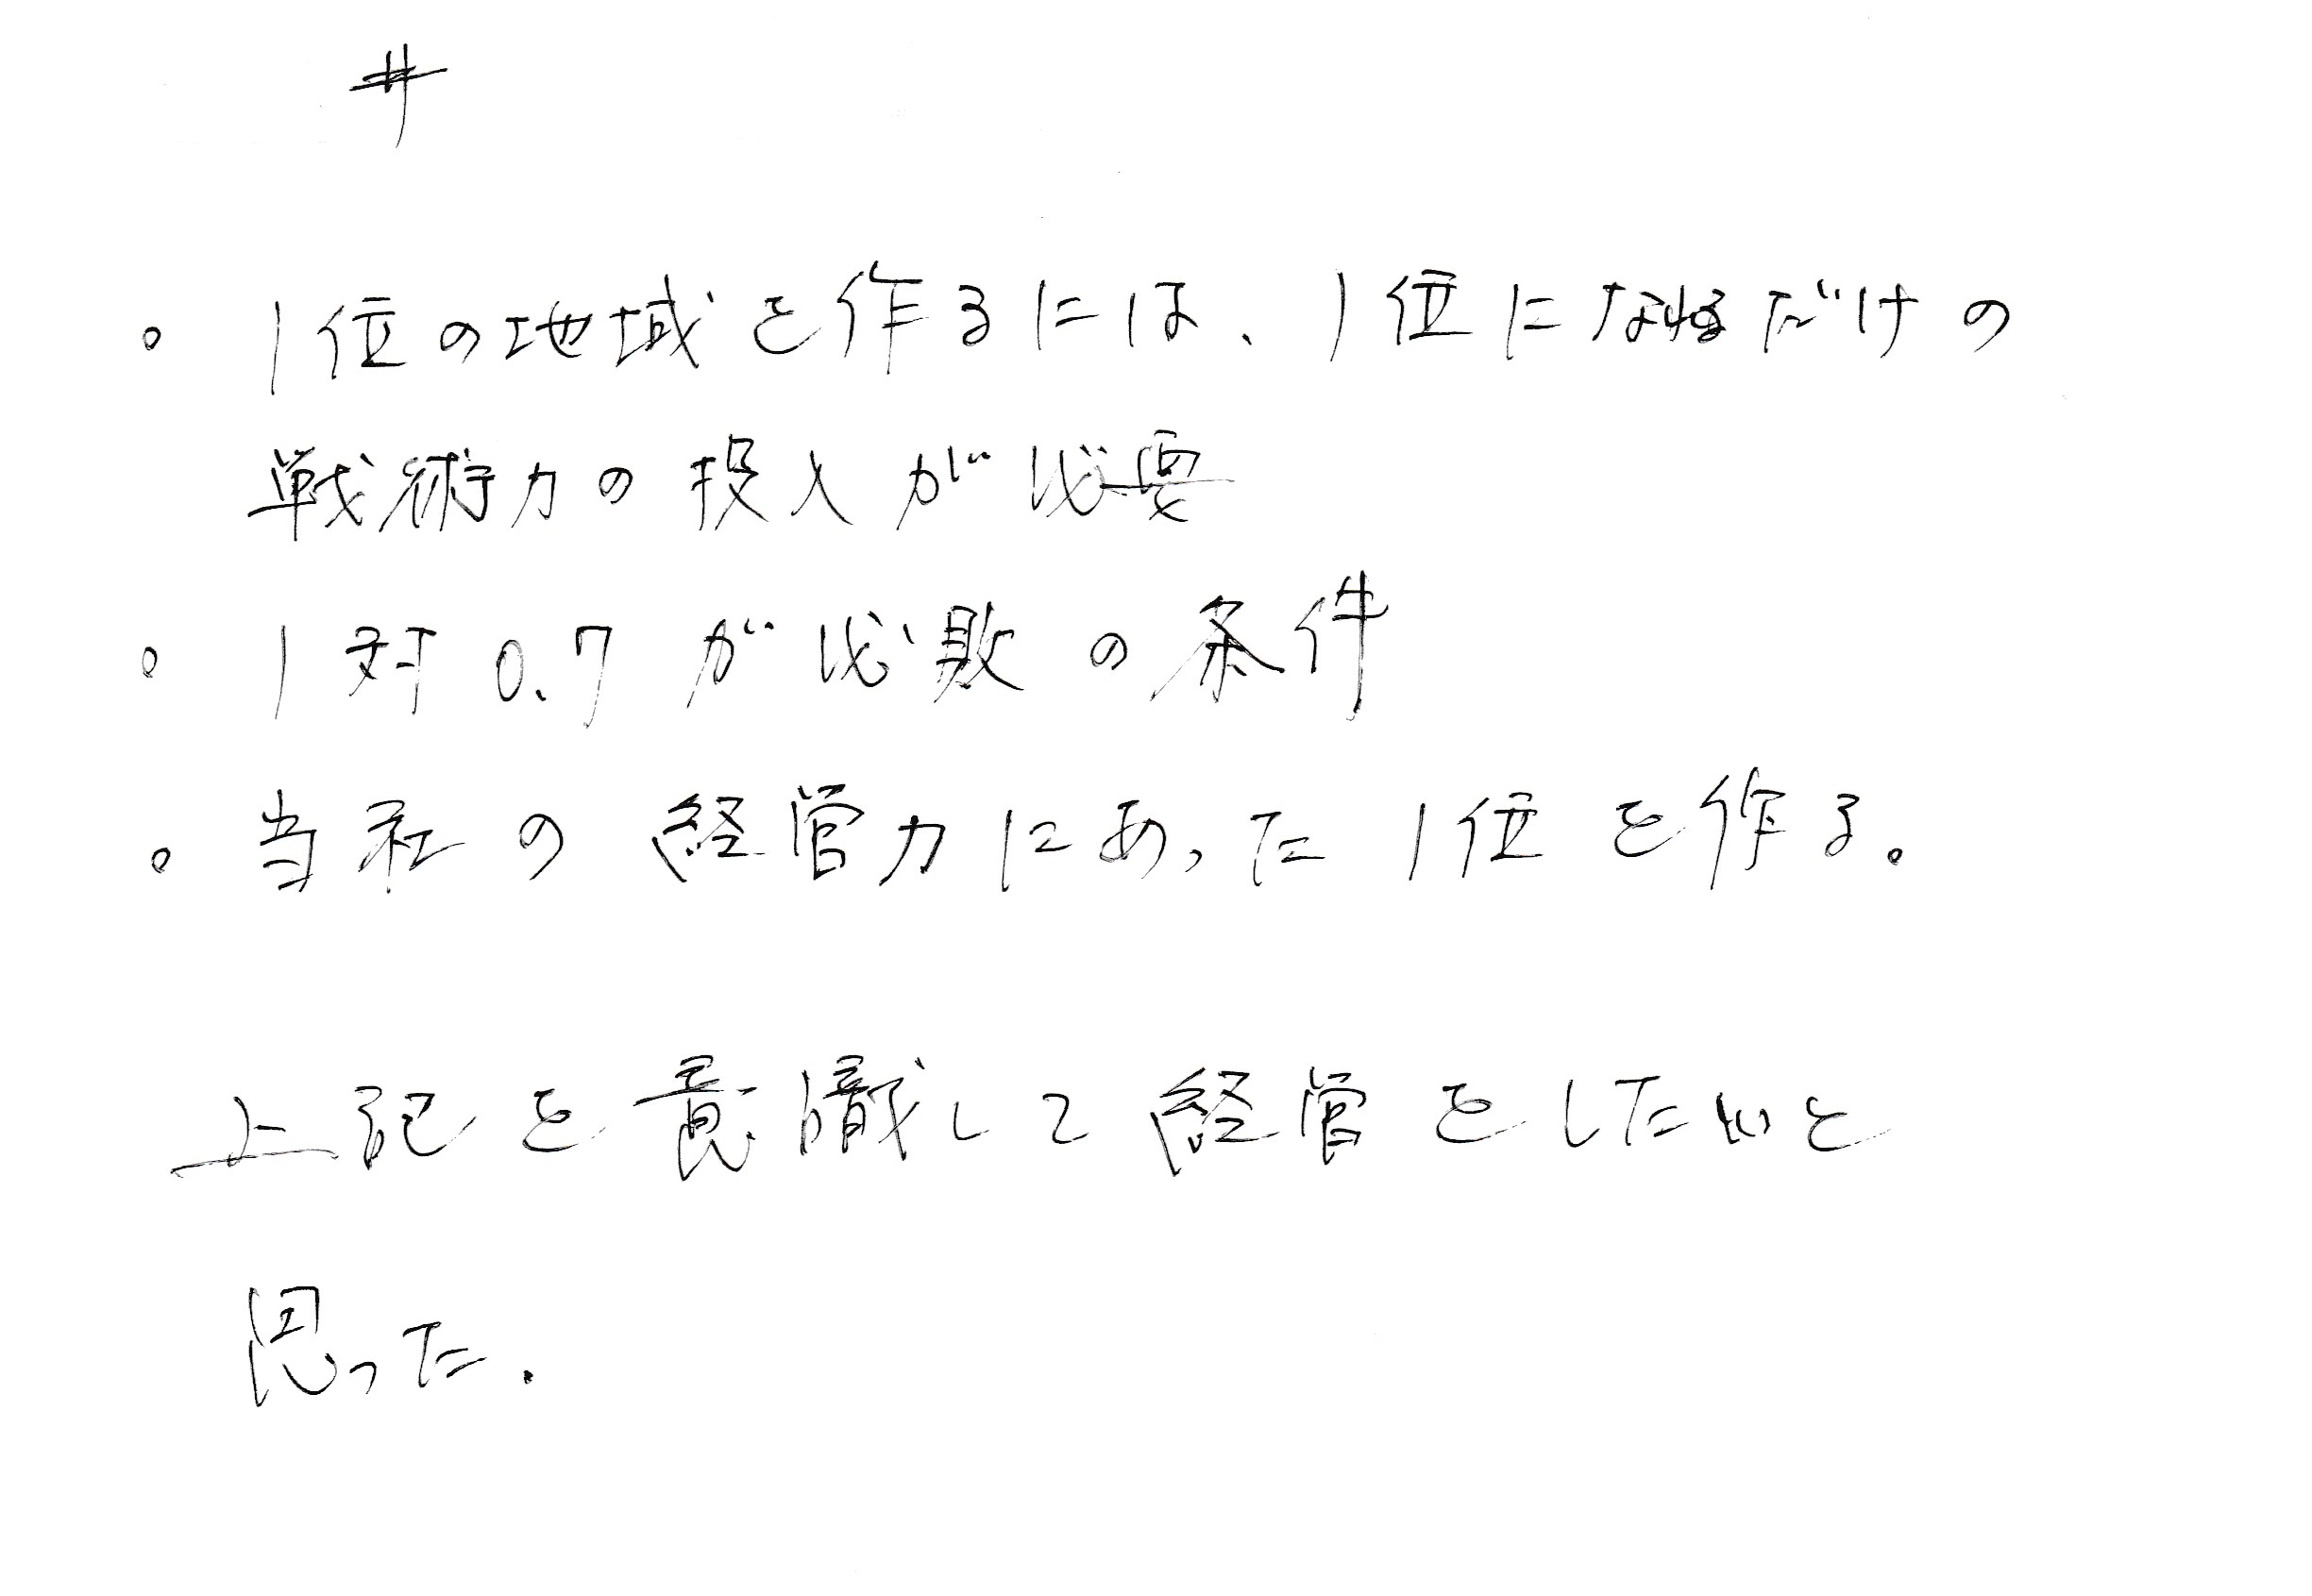 井
。1位の地域を作るには、1位になれるだけの
戦術力の投入が必要
。1対0.7が必敗の条件
。当社の経営力にあった1位を作る。
上記を意識して経営をしたいと
思った.